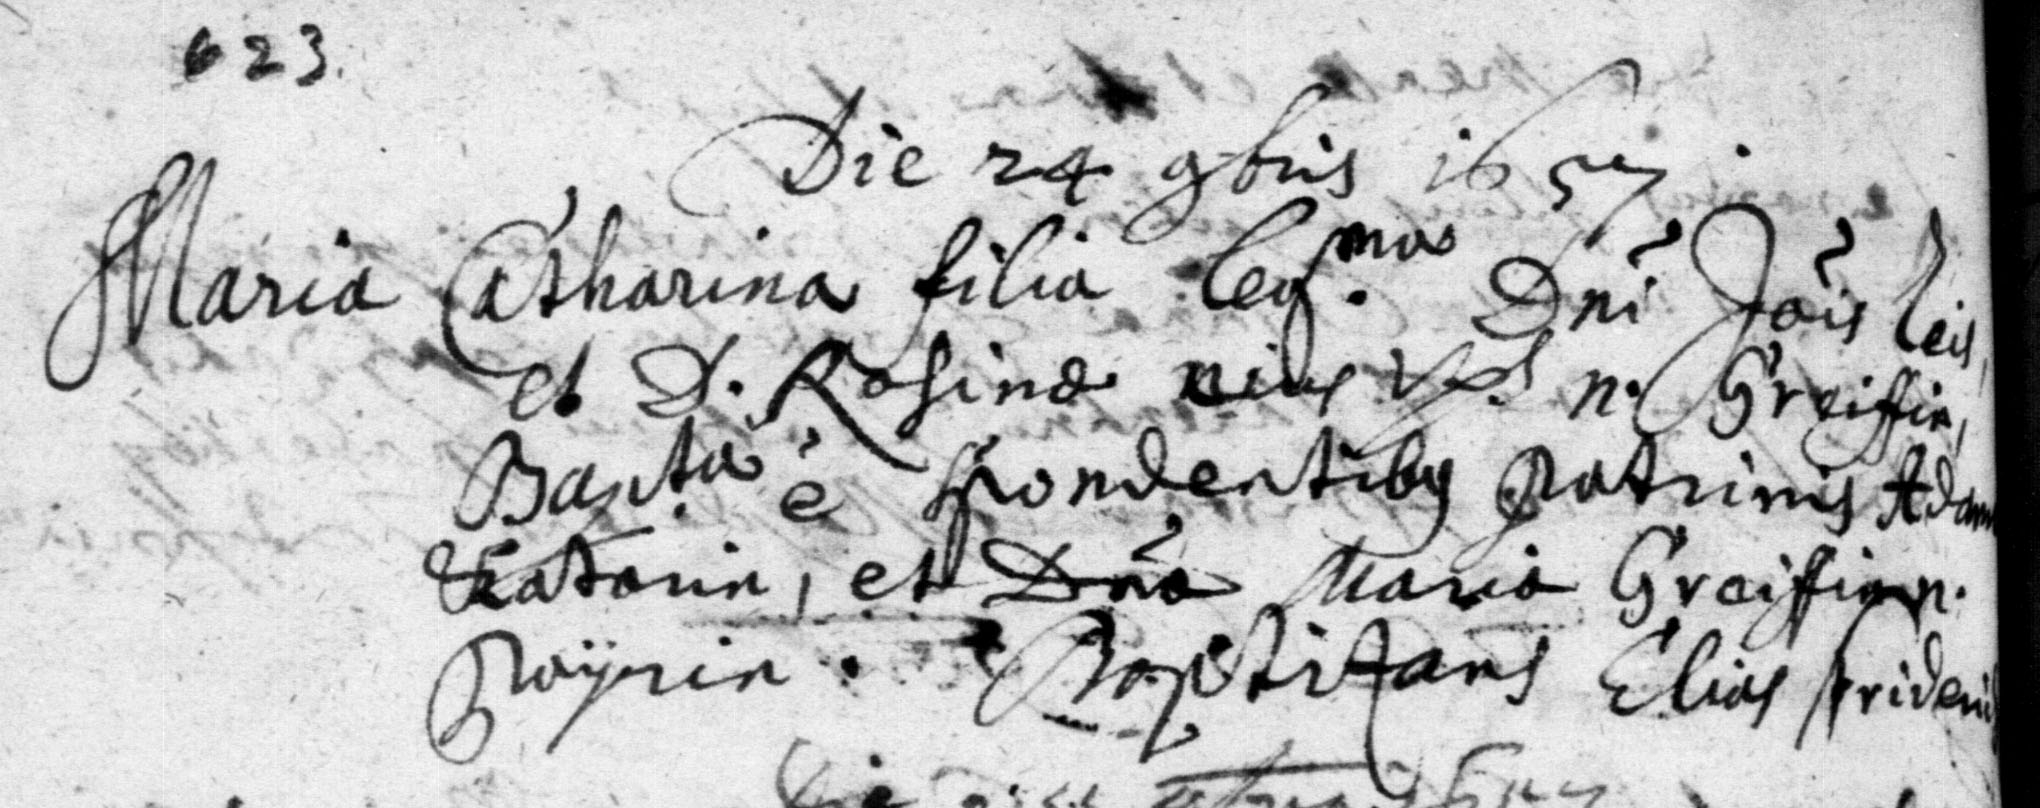 623.
Die 24 9bris 1657.
Maria Catharina filia legma. Dni Jois Leis,
et D. Rosinæ eius Vxs n. Greiffin,
Bapta. ē spondentibg patrinis Adam
et Dna Maria Greiffin n.
Payrin. Baptizans Elias